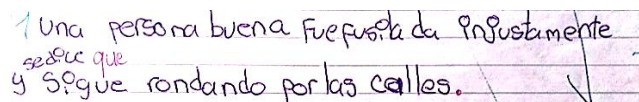 1 Una persona buena Fue fusila da injustamente
se dice que
y sigue rondando por las calles.